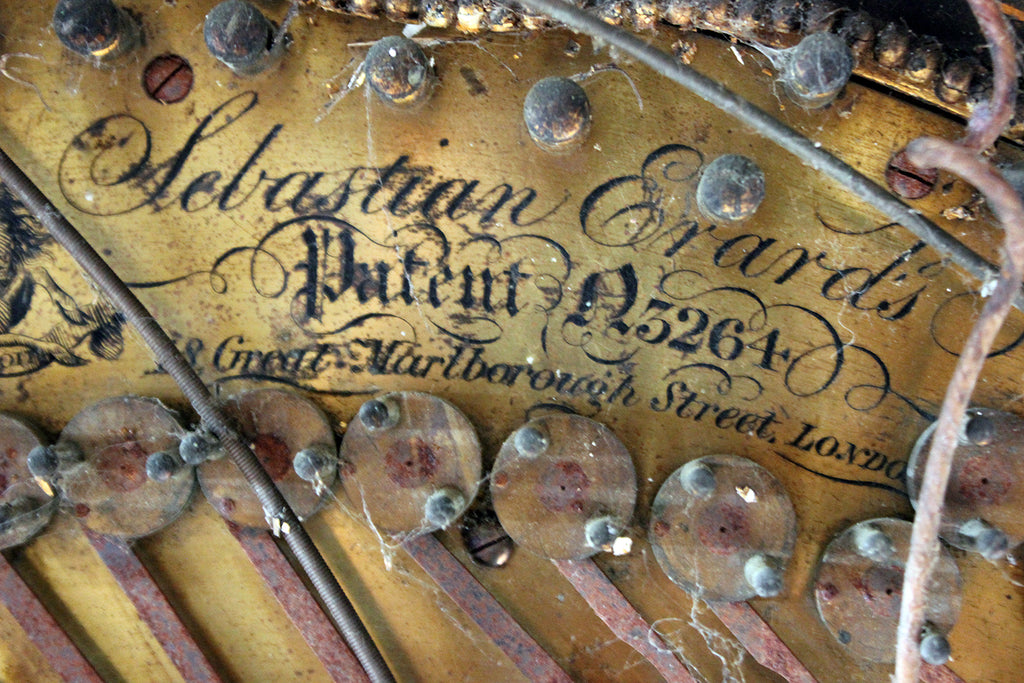 Sebastian Erard's
Patent No 3264
18 Great Marlborough Street, London